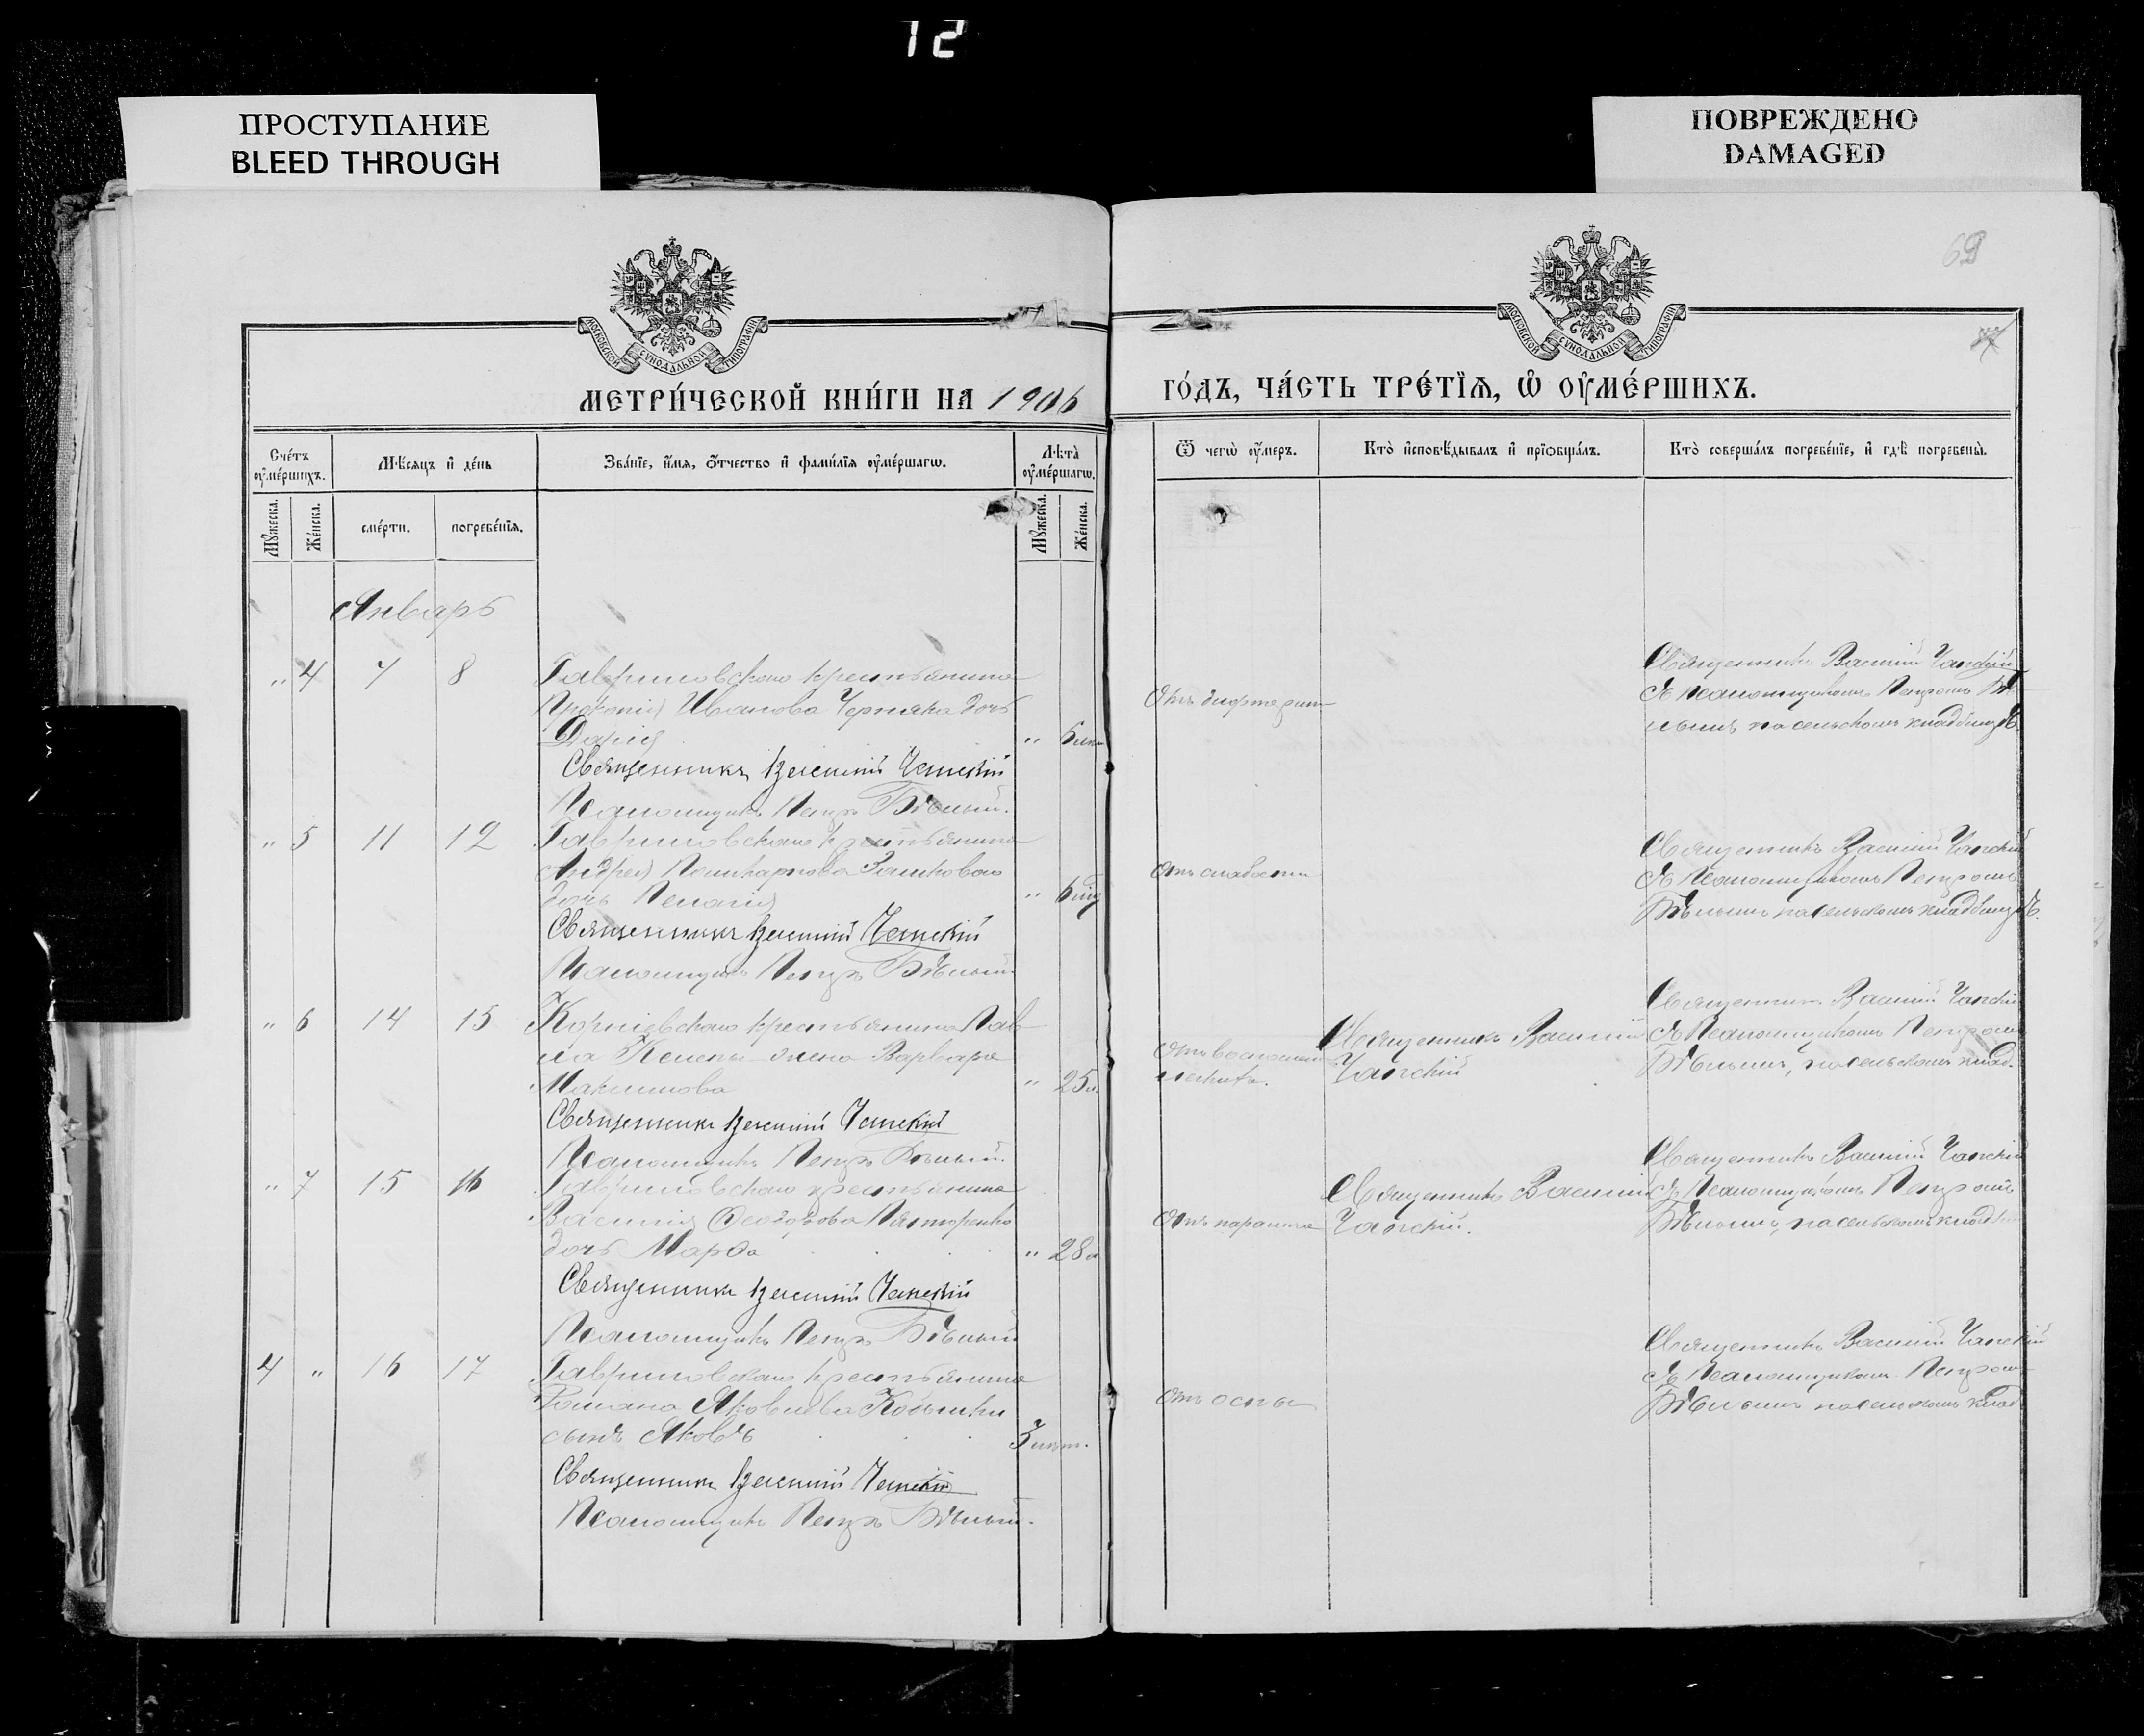 12
ПРОСТУПАНИЕ
BLEED THROUGH
ПОВРЕЖДЕНО
DAMAGED
69
МОСКОВСКОЙ СУНОДАЛЬНОЙ ТИПОГРАФІИ
МОСКОВСКОЙ СУНОДАЛЬНОЙ ТИПОГРАФІИ
МЕТРИ́ЧЕСКОЙ КНИ́ГИ НА 1906
ГО́ДЪ, ЧА́СТЬ ТРЕ́ТЇѦ, Ѡ ОУМЕ́РШИХЪ.
Сче́тъ оуме́ршихъ.
Мѣ́сяцъ и де́нь
Зва́нїе, и́мѧ, о́тчество и фами́лїѧ оуме́ршагѡ.
Лѣ́та оуме́ршагѡ.
Мꙋ́жеска.
Же́нска.
сме́рти.
погребе́нїѧ.
Мꙋ́жеска.
Же́нска.
Ѿ чегѡ̀ оу́меръ.
Кто̀ исповѣ́дывалъ и прїѡбща́лъ.
Кто̀ соверша́лъ погребе́нїе, и гдѣ̀ погребены̀.
Январь
" 4 7 8 Гавриловскаго крестьянина
Прокопія Иванова Черняка дочь
Дарія " 6
Священникъ Василій Чапскій
Псаломщикъ Петръ Бѣлый.
Отъ дифтерит
Священникъ Василій Чапскій
съ Псаломщикомъ Петромъ Бѣ
лымъ на сельскомъ кладбищѣ.
" 5 11 12 Гавриловскаго крестьянина
Андрея Поликарпова
дочь Пелагія " 6
Священникъ Василій Чапскій
Псаломщикъ Петръ Бѣлый
Отъ слабости
Священникъ Василій Чапскій
съ Псаломщикомъ Петромъ
Бѣлымъ на сельскомъ кладбищѣ.
" 6 14 15 Корніевскаго крестьянина Пав
ла жена Варвара
Максимова " 25 л.
Священникъ Василій Чапскій
Псаломщикъ Петръ Бѣлый.
Священникъ Василій
Чапскій
Священникъ Василій Чапскій
съ Псаломщикомъ Петромъ
Бѣлымъ, на сельскомъ клад.
" 7 15 16 Гавриловскаго крестьянина
Василія Ѳеодорова
дочь Марѳа " 28
Священникъ Василій Чапскій
Псаломщикъ Петръ Бѣлый
Священникъ Василій
Чапскій.
Священникъ Василій Чапскій
съ Псаломщикомъ Петромъ
Бѣлымъ, на сельскомъ кладб
4 " 16 17 Гавриловскаго крестьянина
Романа Яковлева
сынъ Яковъ 3
Священникъ Василій Чапскій
Псаломщикъ Петръ Бѣлый.
отъ оспы
Священникъ Василій Чапскій
съ Псаломщикомъ Петром
Бѣлымъ на сельскомъ клад.